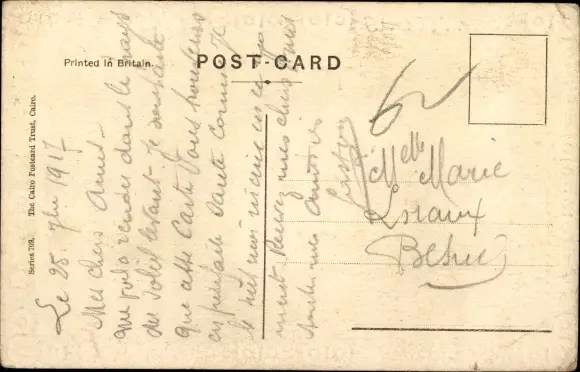 Printed in Britain.
POST-CARD
Series 709. The Cairo Postcard Trust, Cairo.
Le 25 7bre 1917
Mes chers Amis -
Me voila rendus dans le pays
du soleil levant. Je souhaite
que cette Carte Vous trouvera
en parfaite Santé comme je
le suis moi
ment. Recevez mes chers amis
amitiés
Gaston
Melle Marie